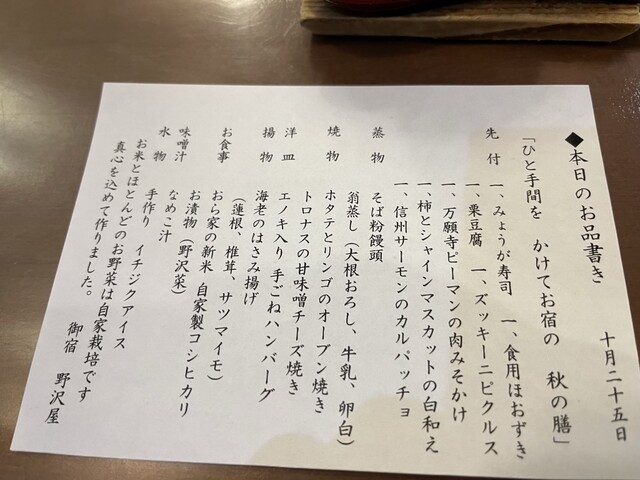 ◆本日のお品書き
十月二十五日
「ひと手間を　かけてお宿の　秋の膳」
先付　一、みょうが寿司　一、食用ほおずき
一、栗豆腐　一、ズッキーニピクルス
一、万願寺ピーマンの肉みそかけ
一、柿とシャインマスカットの白和え
一、信州サーモンのカルパッチョ
蒸物　そば粉饅頭
翁蒸し（大根おろし、牛乳、卵白）
焼物　ホタテとリンゴのオーブン焼き
トロナスの甘味噌チーズ焼き
洋皿　エノキ入り 手ごねハンバーグ
揚物　海老のはさみ揚げ
（蓮根、椎茸、サツマイモ）
お食事　おら家の新米 自家製コシヒカリ
お漬物（野沢菜）
味噌汁　なめこ汁
水物　手作り　イチジクアイス
お米とほとんどのお野菜は自家栽培です
真心を込めて作りました。
御宿　野沢屋